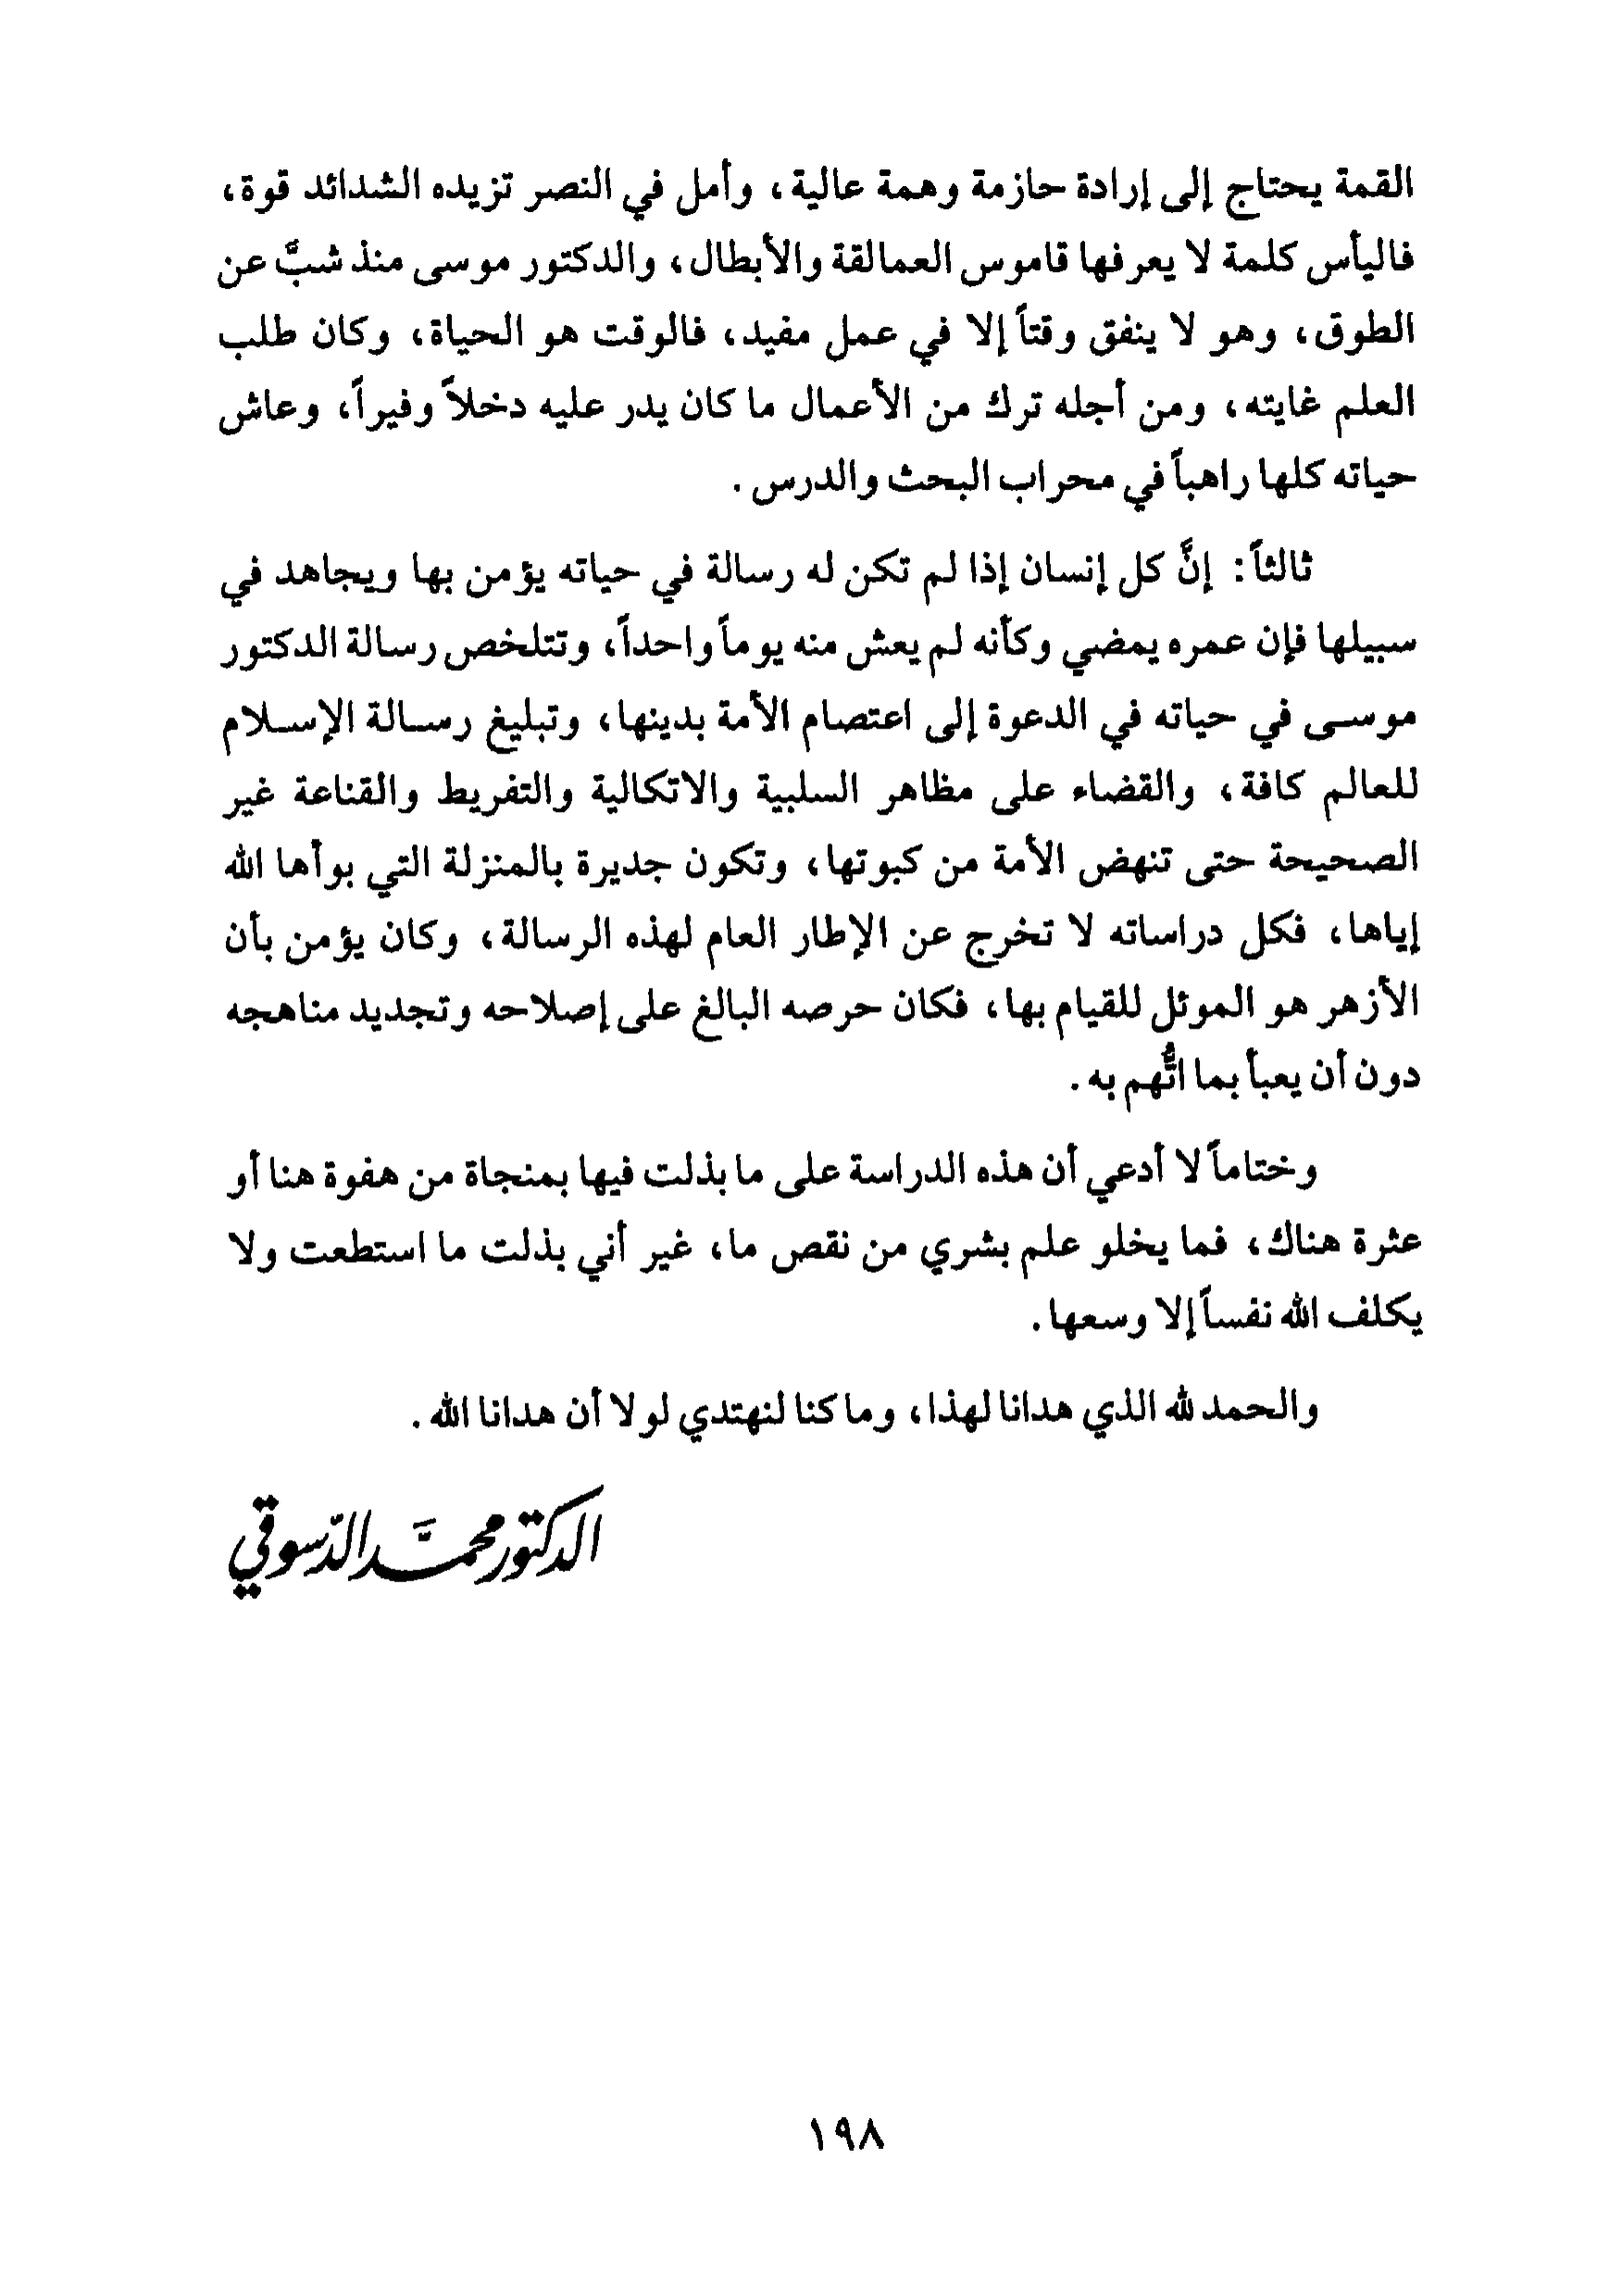 القمة يحتاج إلى إرادة حازمة وهمة عالية، وأمل في النصر تزيده الشدائد قوة،
فاليأس كلمة لا يعرفها قاموس العمالقة والأبطال، والدكتور موسى منذ شبَّ عن
الطوق، وهو لا ينفق وقتاً إلا في عمل مفيد، فالوقت هو الحياة، وكان طلب
العلم غايته، ومن أجله ترك من الأعمال ما كان يدر عليه دخلاً وفيراً، وعاش
حياته كلها راهباً في محراب البحث والدرس.
ثالثاً: إنَّ كل إنسان إذا لم تكن له رسالة في حياته يؤمن بها ويجاهد في
سبيلها فإن عمره يمضي وكأنه لم يعش منه يوماً واحداً، وتتلخص رسالة الدكتور
موسى في حياته في الدعوة إلى اعتصام الأمة بدينها، وتبليغ رسالة الإسلام
للعالم كافة، والقضاء على مظاهر السلبية والاتكالية والتفريط والقناعة غير
الصحيحة حتى تنهض الأمة من كبوتها، وتكون جديرة بالمنزلة التي بوأها الله
إياها، فكل دراساته لا تخرج عن الإطار العام لهذه الرسالة، وكان يؤمن بأن
الأزهر هو الموئل للقيام بها، فكان حرصه البالغ على إصلاحه وتجديد مناهجه
دون أن يعبأ بما اتُّهم به.
وختاماً لا أدعي أن هذه الدراسة على ما بذلت فيها بمنجاة من هفوة هنا أو
عثرة هناك، فما يخلو علم بشري من نقص ما، غير أني بذلت ما استطعت ولا
يكلف الله نفساً إلا وسعها.
والحمد لله الذي هدانا لهذا، وما كنا لنهتدي لولا أن هدانا الله.
الدكتور محمَّد الدّسوقي
١٩٨